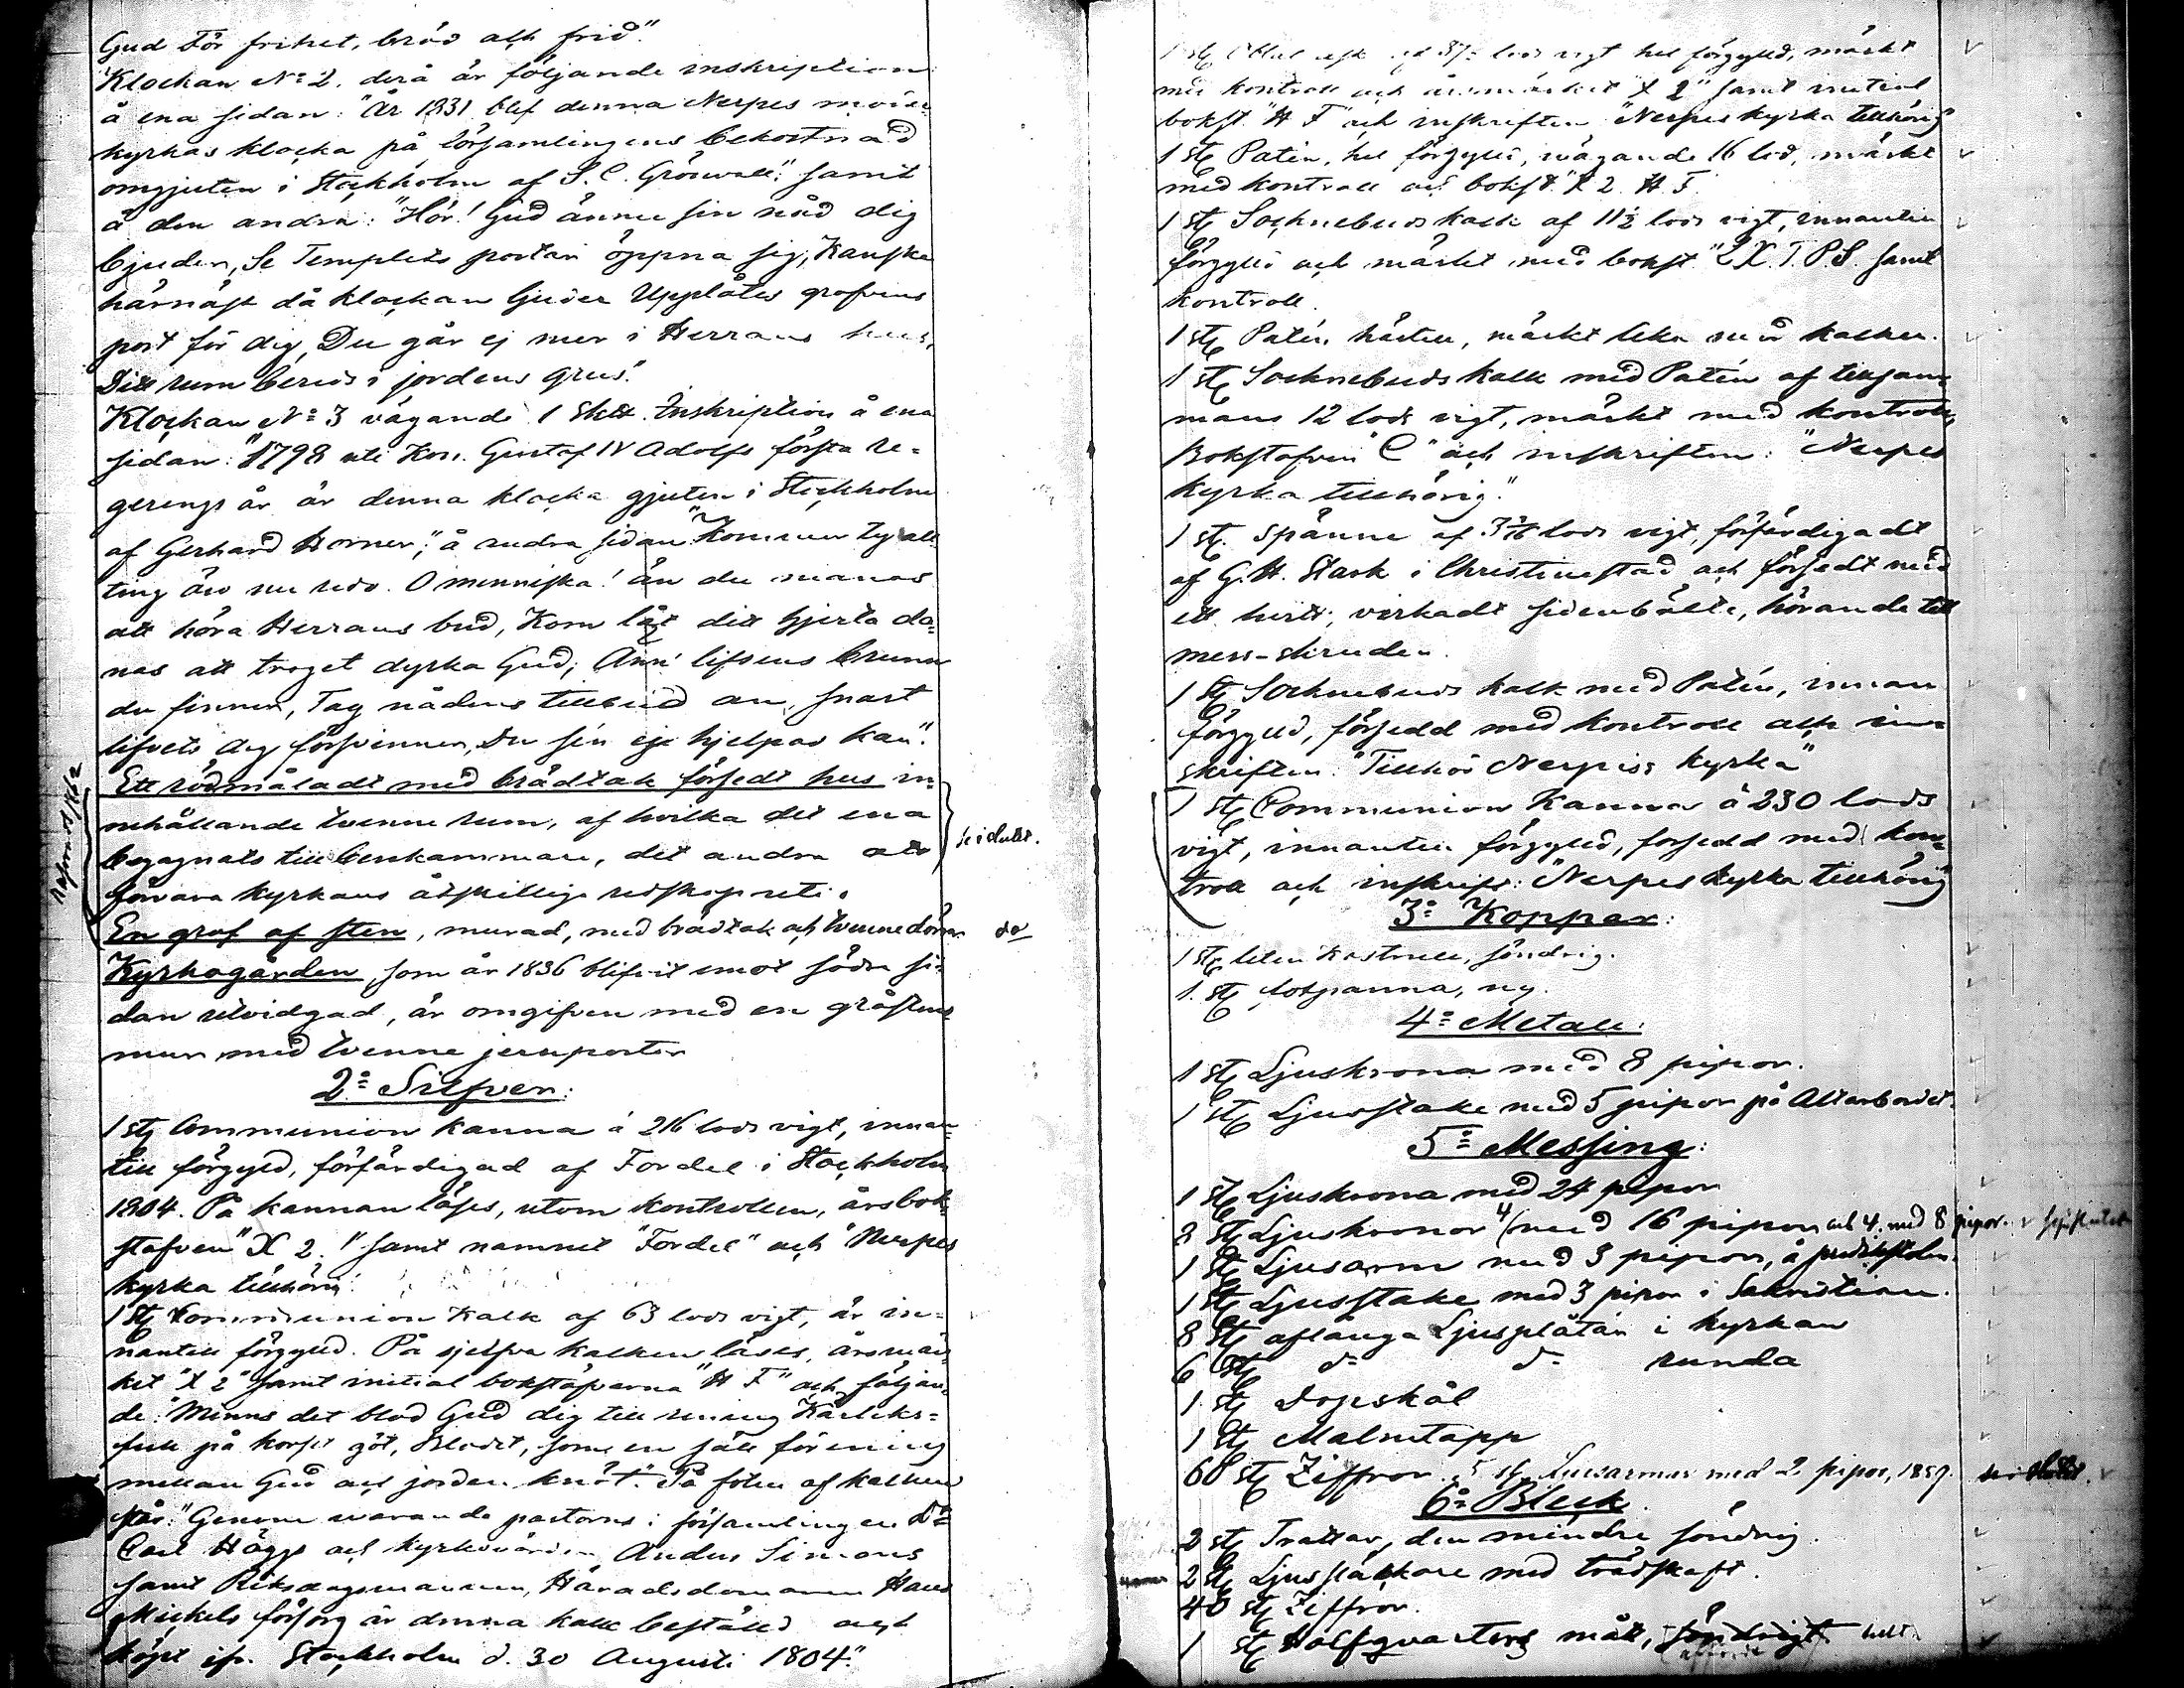 Gud för frihet, bröd och frid".
Klockan No 2. derå är följande inskription
å ena sidan: "År 1831 blef denna Nerpes moder
kyrkas klocka på församlingens bekostnad
omgjuten i Stockholm af S. C. Grönvall"; samt
å den andra: "Hör! Gud ännu sin nåd dig
bjuder, Se Templets portar öppna sig, Kanske
härnäst då klockan ljuder Upplåtes grafvens
port för dig, Du går ej mer i Herrans hus,
Ditt rum bereds i jordens grus."
Klockan No 3 vägande 1 Sk℔. Inskription å ena
sidan: "1798 uti Kon. Gustaf IV Adolfs första re-
gerings år är denna klocka gjuten i Stockholm
af Gerhard Horner"; å andra sidan "Kommer ty all
ting äro nu redo. O menniska! än du manas
att höra Herrans bud, Kom låt ditt hjerta da-
nas att troget dyrka Gud; Ann' lifsens brunn
du finner, Tag nådens tillbud an, snart
lifvets dag försvinner, Du sen ej hjelpas kan".
Ett rödmåladt med brädtak försedt hus in-
nehållande tvenne rum, af hvilka det ena
begagnats till benkammare, det andra att
förvara kyrkans åtskilliga redskap uti.
se slutet.
En graf af sten, murad, med brädtak och tvenne dörrar. do
Kyrkogården, som år 1836 blifvit emot södra si-
dan utvidgad, är omgifven med en gråstens
mur med tvenne jernportar
2o Silfver:
1 st Communion kanna á 216 lods vigt, innan-
till förgyld, förfärdigad af Fordel i Stockholm
1804. På kannan läses, utom kontrollen, årsbok-
stafven "X 2." samt namnet "Fordel" och "Nerpes
kyrka tillhörig".
1 st Kommunion Kalk af 63 lods vigt, är in-
nantill förgylld. På sjelfva kalken läses, årsmär-
ket "X 2" samt initial bokstäfverna "H F" och följan-
de: "Minns det blod Gud dig till rening Kärleks-
full på korset göt, Blodet, som en säll förening
mellan Gud och jorden knöt". På foten af kalken
står: "Genom warande pastorns i församlingen Dr
Carl Häggs och kyrkovärden Anders Simons
samt Riksdagsmannen, Häradsdomaren Hans
Mickels försorg är denna kalk bestäld och
köpt ifr. Stockholm d. 30 Augusti 1804."
lods vigt hel förgylld, märkt
med kontroll och årsmärket "X 2" samt initial
bokst. "H F" och inskriften "Nerpes kyrka tillhörig"
1 st Patén, hel förgylld, vägande 16 lod, märkt
med kontroll och bokst. "X 2. H. F.
1 st Socknebuds kalk af 11½ lods vigt, innantill
förgylld och märkt med bokst. "L X. T. P. S. samt
kontroll.
1 st Patén härtill, märkt lika med kalken.
1 st Socknebuds kalk med Patén af tillsam-
mans 12 lods vigt, märkt med kontroll,
Bokstafven "C" och inskriften: "Nerpes
kyrka tillhörig."
1 st. Spänne af lods vigt, förfärdigadt
af G. H. Stark i Christinestad och försedt med
ett hvitt, virkadt sidenbälte, hörande till
mess-skruden.
1 st Socknebuds kalk med Patén, innan
förgylld, försedd med kontroll och in-
skriften: "Tillhör Nerpiss kyrka"
1 st Communion Kanna á 230 lods
vigt, innantill förgylld, försedd med kon-
troll och inskrift: "Nerpes kyrka tillhörig"
3o Koppar:
1 st liten Kastrull, söndrig.
1. st fotpanna, ny.
4o Metall:
1 st Ljuskrona med 8 pipor.
1 st Ljusstake med 5 pipor på Altarbordet.
5o Messing:
1 st Ljuskrona med 24 pipor
8 st Ljuskronor 4 (med 16 pipor och 4. med 8 pipor. se slutet
1 st Ljusarm med 3 pipor, å predikstolen.
1 st Ljusstake med 3 pipor i Sakristian.
8 st aflånga Ljusplåtar i kyrkan
6 st do do runda
1 st Dopskål
1 st Malmtapp
60 st Ziffror. 5 st. Ljusarmar med 2 pipor, 1859. se slutet.
6o Bleck.
2 st Trattar, den mindre söndrig.
2 st Ljussläckare med trädskaft.
40 st Ziffror.
1 st Halfqvarters mått, söndrigt helt